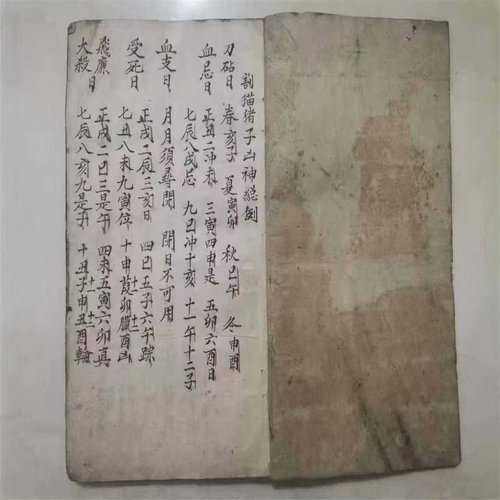 割猫猪子凶神總例
刀砧日 春亥子 夏寅卯 秋巳午 冬申酉
血忌日 正丑二冲未 三寅四申是 五卯六酉日
七辰八戌忌 九巳冲十亥 十一午十二子
血支日 月月須尋閉 閉日不可用
受死日 正戌二辰三亥日 四巳五子六午踪
七丑八未九寅位 十申十一卯臘酉凶
飛廉大殺日 正戌二巳三是午 四未五寅六卯真
七辰八亥九是子 十丑十一申十二酉輪